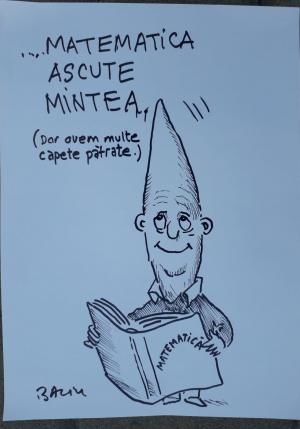 ....MATEMATICA
ASCUTE
MINTEA..
(Dar avem multe
capete pătrate.)
MATEMATICĂ